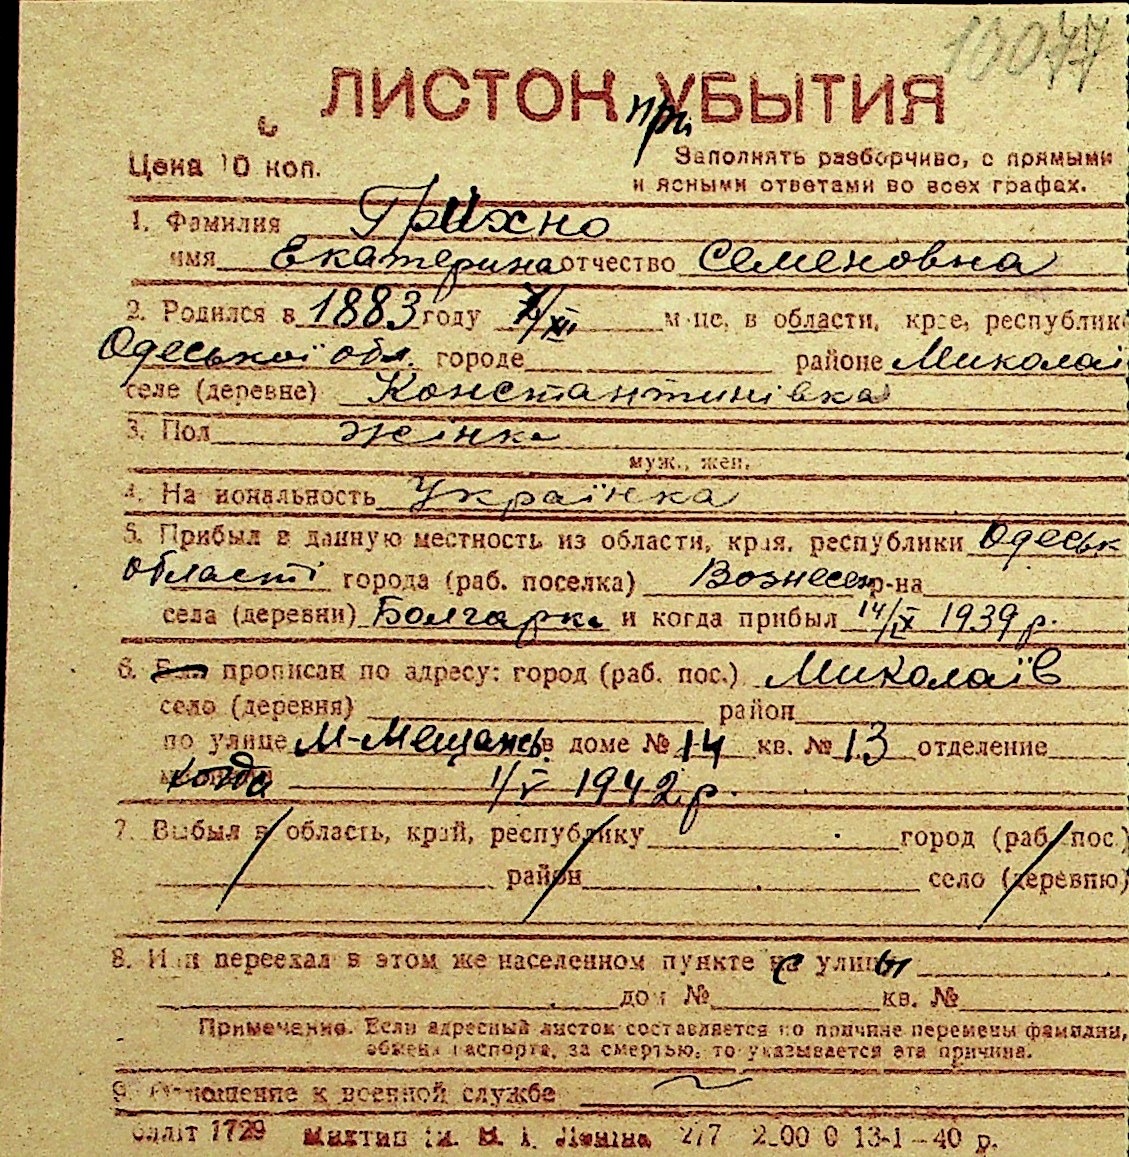 10077
ЛИСТОК при УБЫТИЯ
Цена 10 коп.
Заполнять разборчиво, с прямыми
и ясными ответами во всех графах.
1. Фамилия Грихно
имя Екатерина отчество Семеновна
2. Родился в 1883 году 7/XII м-це, в области, крае, республике
Одеської обл. городе районе Миколаї
селе (деревне) Константинівка
3. Пол жінка
муж., жен.
4. Национальность Українка
5. Прибыл в данную местность из области, края, республики Одеськ
області города (раб. поселка) Вознесен р-на
села (деревни) Болгарка и когда прибыл 14/IX 1939 р.
6. Был прописан по адресу: город (раб. пос.) Миколаїв
село (деревня) район
по улице М-Мещансь в доме № 14 кв. № 13 отделение
когда 1/V 1942 р.
7. Выбыл в область, край, республику город (раб. пос.)
район село (деревню)
8. Или переехал в этом же населенном пункте с улицы
дом № кв. №
Примечание. Если адресный листок составляется по причине перемены фамилии,
обмена паспорта, за смертью, то указывается эта причина.
9. Отношение к военной службе
1729 ім. В. І. Леніна 277 13-1-40 р.